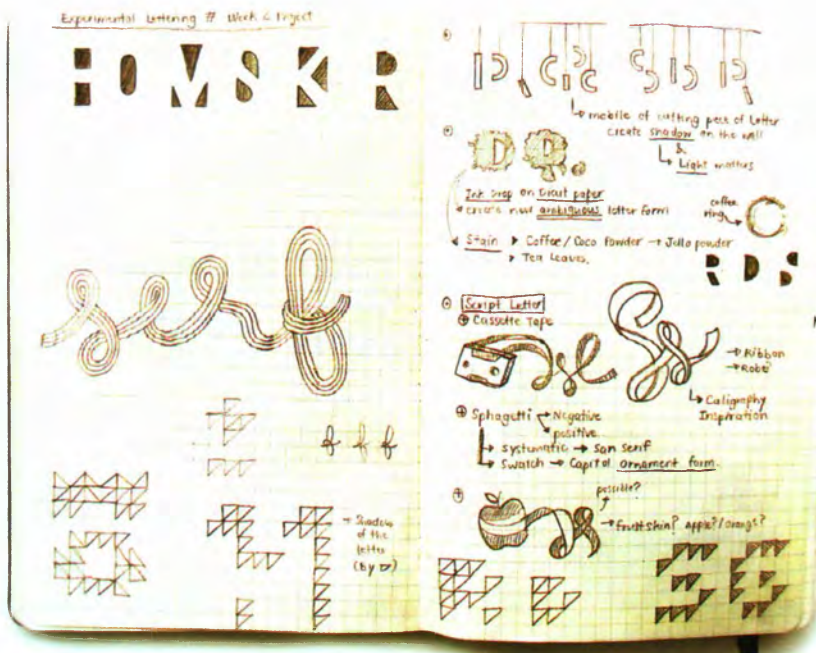 Experimental Lettering # Week 2 Project
H O M S K R
serf
Shadow
of the
letter
(by ▽)
mobile of cutting piece of letter
create shadow on the wall
&
Light matters
D D
Ink Drop on Dicut paper
create new ambiguous letter form
coffee
ring
C
Stain Coffee / Coco Powder → Jello powder
Tea Leaves.
R D S
Script Letter
Cassette Tape
→ Ribbon
→ Robe
Caligraphy
Inspiration
Sphagetti Negative
positive
systematic → San Serif
Swatch → Capital ornament form.
possible?
→ fruitskin? apple?/orange?